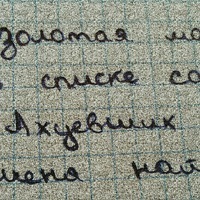 золотая мо
списке со
Ахуевших
мена най